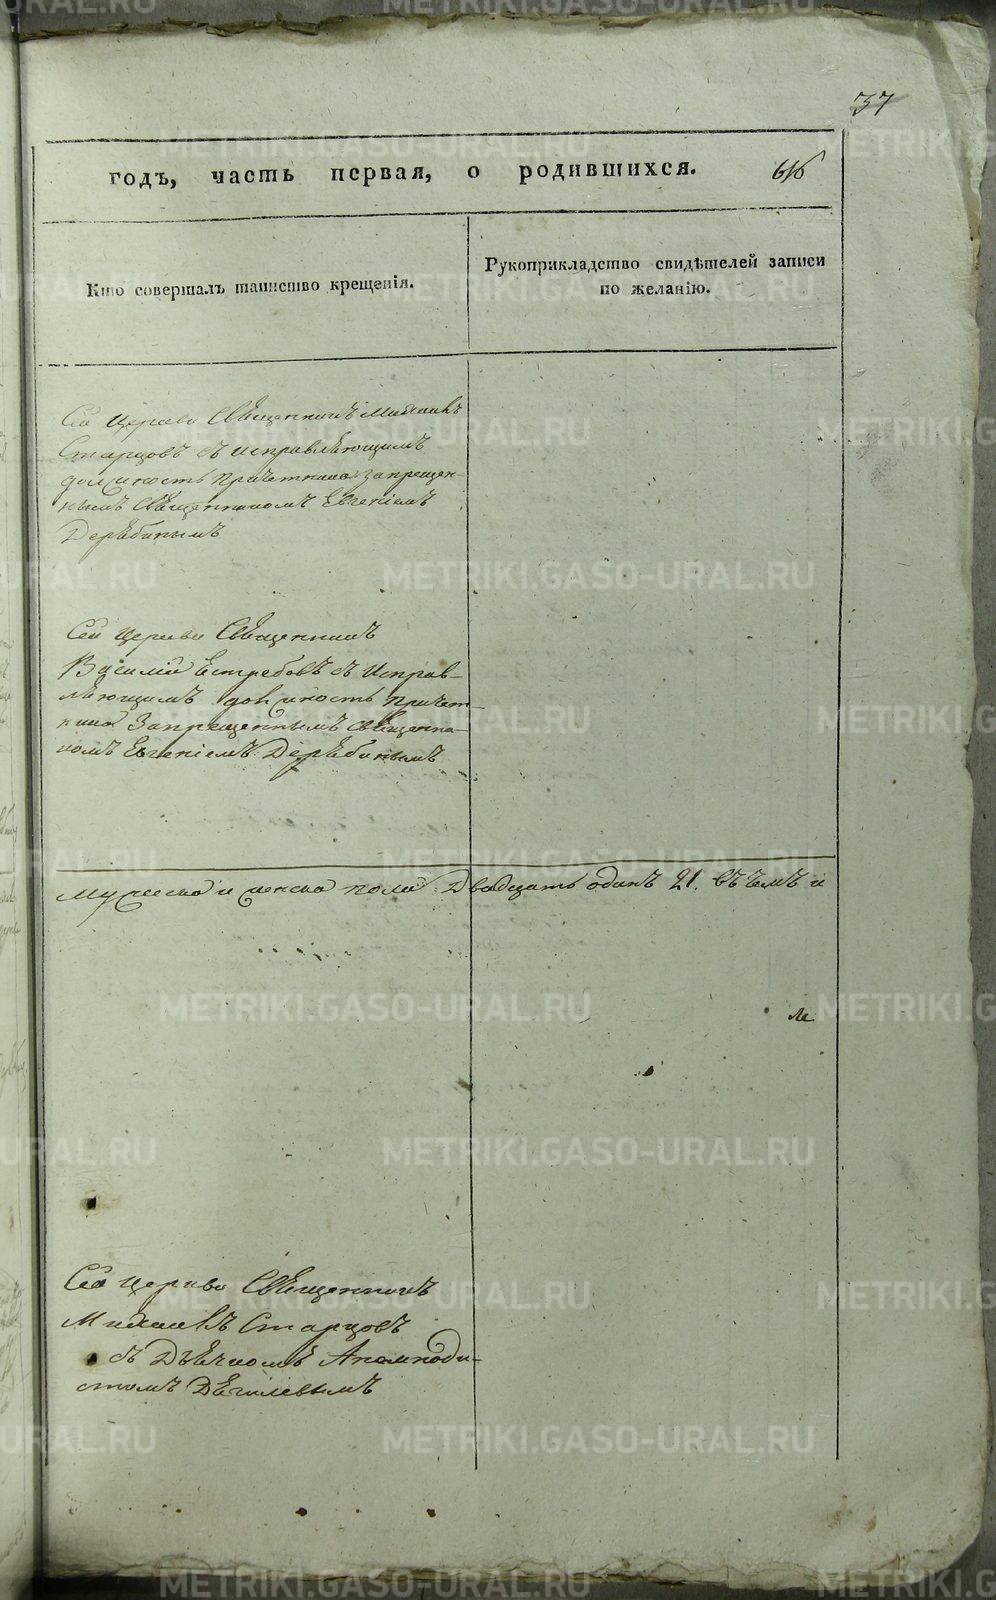 37
годъ, часть первая, о родившихся.
Кто совершалъ таинство крещенія.
Рукоприкладство свидѣтелей записи
по желанію.
Сей Церкви Священникъ Михаилъ
Старцовъ съ исправляющимъ
должность причетника запрещен-
нымъ Священникомъ Евгеніемъ
Дерябинымъ
Сей Церкви Священникъ
Василій Ястребовъ съ Исправ-
ляющимъ должность причет-
ника Запрещеннымъ священни-
комъ Евгеніемъ Дерябинымъ
Мужеска и женска пола Двадцать одинъ 21. въ чемъ и
Сей Церкви Священникъ
Михаилъ Старцовъ
съ Дьячкомъ Анемподи-
стомъ
METRIKI.GASO-URAL.RU